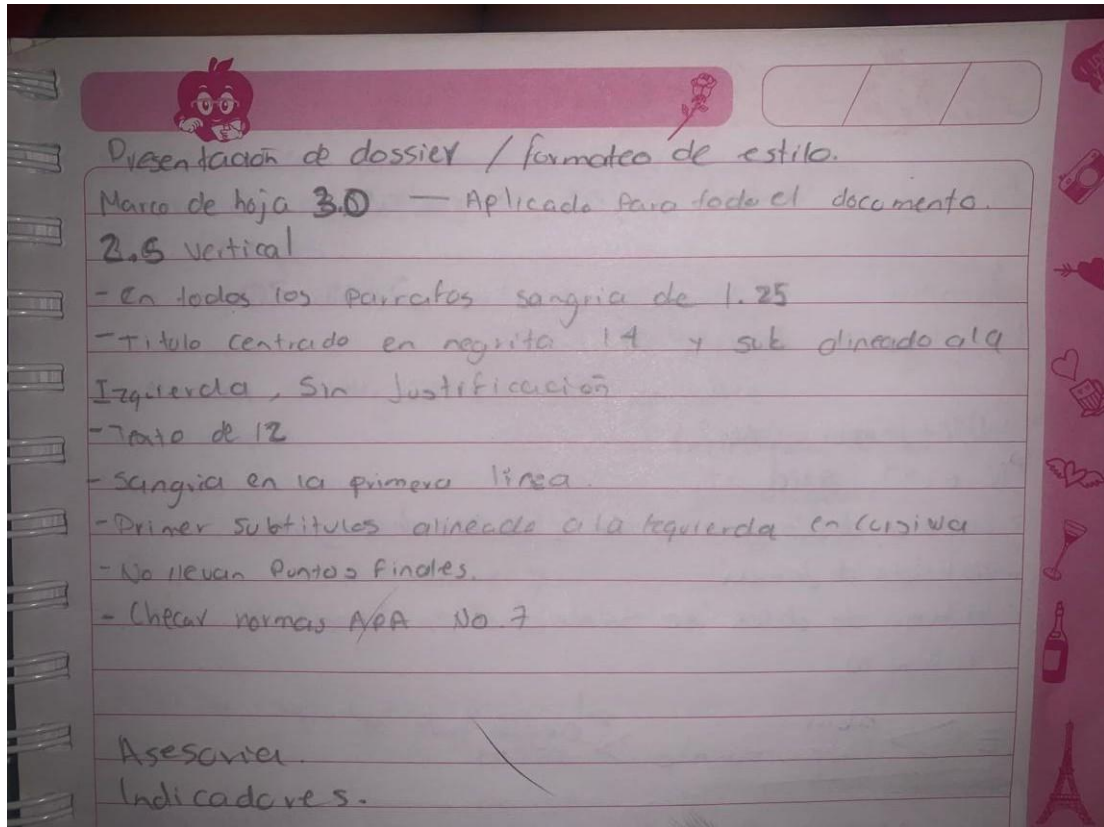 Presentación de dossier / formateo de estilo.
Marco de hoja 3.0 — Aplicado para todo el documento.
2.5 vertical
- En todos los parrafos sangria de 1.25
- Titulo centrado en negrita 14 y sub alineado a la
Izquierda, Sin Justificación
- Texto de 12
- Sangria en la primera linea.
- Primer subtitulos alineado a la izquierda en cursiva
- No llevan Puntos finales.
- Checar normas APA No. 7
Asesoria.
Indicadores.